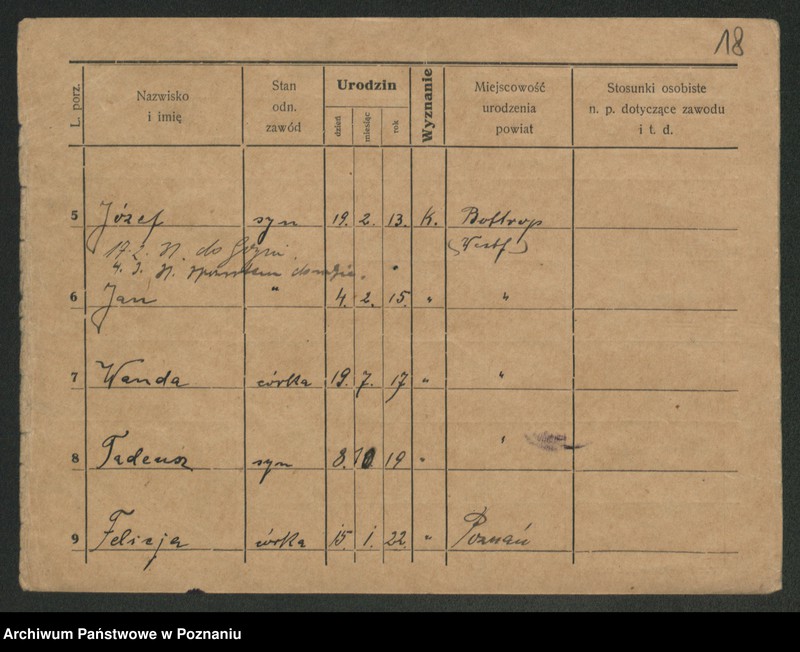 18
L. porz.
Nazwisko
i imię
Stan
odn.
zawód
Urodzin
dzień
miesiąc
rok
Wyznanie
Miejscowość
urodzenia
powiat
Stosunki osobiste
n. p. dotyczące zawodu
i t. d.
5 Józef syn 19. 2. 13. K. Bottrop
(Westf)
do
6 Jan " 4. 2. 15. " "
7 Wanda córka 19. 7. 17 " "
8 Tadeusz syn 8. 10 19 " "
9 Felicja córka 15. 1. 22. " Poznań
Archiwum Państwowe w Poznaniu